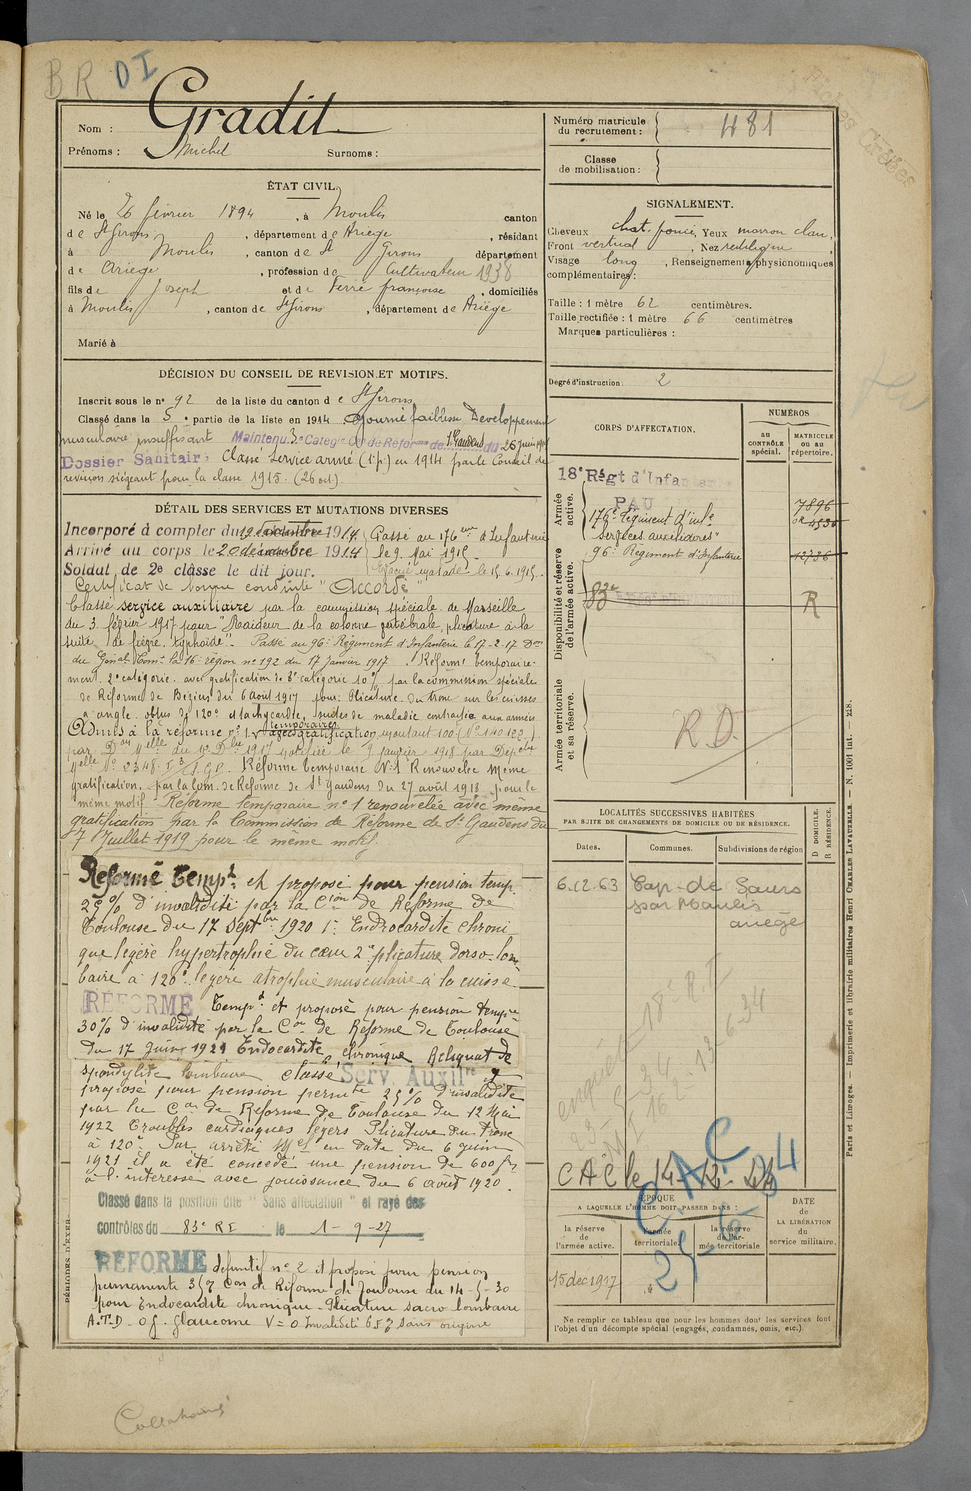 BR DI
Nom : Gradit
Prénoms : Michel Surnoms :
Numéro matricule du recrutement : 481
Classe de mobilisation :
ÉTAT CIVIL.
Né le 26 février 1894, à Moulis canton
de St Girons, département de Ariège, résidant
à Moulis, canton de St Girons département
de Ariège, profession de Cultivateur 1938
fils de Joseph et de Terré françoise, domiciliés
à Moulis, canton de St Girons, département de Ariège
Marié à
SIGNALEMENT.
Cheveux chat. foncé, Yeux marron clair,
Front vertical, Nez rectiligne
Visage long, Renseignements physionomiques
complémentaires :
Taille : 1 mètre 62 centimètres.
Taille rectifiée : 1 mètre 66 centimètres
Marques particulières :
Degré d'instruction : 2
DÉCISION DU CONSEIL DE REVISION ET MOTIFS.
Inscrit sous le no 92 de la liste du canton de St Girons
Classé dans la 5e partie de la liste en 1914 Ajourné faiblesse Développement
musculaire insuffisant Maintenu 3e Catégie Con de Réforme de St Gaudens du 26 juin
Dossier Sanitair: Classé Service armé (1 p.) en 1914 par le Conseil de
revision siégeant pour la classe 1915. (26 oct).
DÉTAIL DES SERVICES ET MUTATIONS DIVERSES
Incorporé à compter du 19 décembre 1914 Passé au 176me d'Infanterie
Arrivé au corps le 20 décembre 1914 le 9 Mai 1915.
Soldat de 2e classe le dit jour. malade le 15.6.1915.
Certificat de bonne conduite "Accordé"
Classé service auxiliaire par la commission spéciale de Marseille
du 3 février 1917 pour "Raideur de la colonne vertébrale, plicature à la
suite de fièvre typhoïde". Passé au 96e Régiment d'Infanterie le 17-2-17 Don
du Génal Comt la 16e région no 192 du 17 Janvier 1917. Réformé temporaire-
ment 2e catégorie avec gratification de 8e catégorie 10% par la commission spéciale
de Réforme de Beziers du 6 août 1917 pour: Plicature du tronc sur les cuisses
à angle obtus de 120° et tachycardie, suites de maladie contractée aux armées
Admis à la réforme no 1 temporaire avec gratification montant 100f (No 140122).
par Don Melle du 10 Dbre 1917 notifiée le 9 janvier 1918 par Depche
Melle No 2348. Réforme temporaire No 1 Renouvelée même
gratification par la Com. de Réforme de St Gaudens du 27 août 1918 pour le
même motif. Réforme temporaire no 1 renouvelée avec même
gratification par la Commission de Réforme de St Gaudens du
7 Juillet 1919 pour le même motif.
Réformé Tempt et proposé pour pension temp.
25% d'invalidité par la Cion de Réforme de
Toulouse du 17 Septbre 1920 1° Endocardite chroni
que légère hypertrophie du cœur 2° plicature dorso-lom
baire à 120° légère atrophie musculaire à la cuisse
RÉFORMÉ Tempt et proposé pour pension tempre
30% d'invalidité par la Con de Réforme de Toulouse
du 17 Juin 1921 Endocardite chronique Reliquat de
spondylite lombaire classé Serv. Auxilre
proposé pour pension permte 25% d'invalidité
par la Con de Réforme de Toulouse du 12 Mai
1922 Troubles cardiaques légers Plicature du tronc
à 120°. Par arrêté Mel en date du 6 juin
1921 il a été concédé une pension de 600 frs
à l'intéressé avec jouissance du 6 août 1920.
Classé dans la position dite "Sans affectation" et rayé des
contrôles du 83e RI le 1-9-27
RÉFORMÉ définitif no 2 et proposé pour pension
permanente 35% Con de Réforme de Toulouse du 14-5-30
pour Endocardite chronique - Plicature sacro lombaire
A.T.D - O.G. glaucome V=0 Invalidité 65% sans origine
PÉRIODES D'EXER.
CORPS D'AFFECTATION.
NUMÉROS
au CONTRÔLE spécial.
MATRICULE OU AU répertoire.
Armée active.
18e Régt d'Infanterie
PAU
176e Régiment d'infie
"services auxiliaires"
7896
96e Régiment d'Infanterie
12736
Disponibilité et réserve de l'armée active.
83e
R
Armée territoriale et sa réserve.
R.D.
LOCALITÉS SUCCESSIVES HABITÉES
PAR SUITE DE CHANGEMENTS DE DOMICILE OU DE RÉSIDENCE.
Dates. Communes. Subdivisions de région
D DOMICILE.
R RÉSIDENCE.
6.12.63 Cap-de Saurs
par Moulis
ariège
18e R.I
13-6-34
CAC le
C.A.C
25-6-34
ÉPOQUE
A LAQUELLE L'HOMME DOIT PASSER DANS :
la réserve de l'armée active.
l'armée territoriale.
la réserve de l'armée territoriale
DATE DE LA LIBÉRATION du service militaire.
15 dec 1917
Ne remplir ce tableau que pour les hommes dont les services font
l'objet d'un décompte spécial (engagés, condamnés, omis, etc.).
Paris et Limoges. — Imprimerie et librairie militaires Henri CHARLES-LAVAUZELLE — N. 1001 int. — 228.